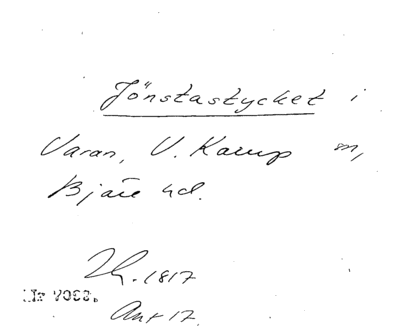 Jönstastycket i
Varan, V. Karup sn,
Bjäre hd.
1817
Nr 7068.
Ant 17.